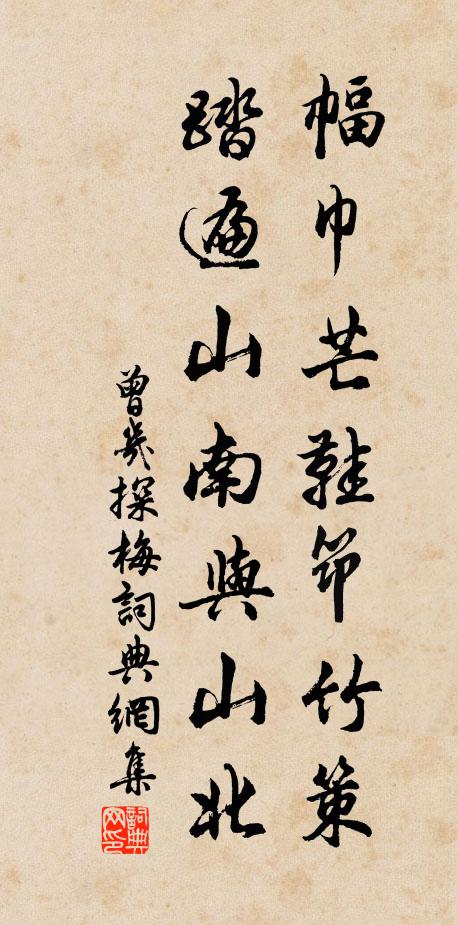 幅巾芒鞋筇竹策
踏遍山南與山北
曾幾探梅詞典網集
詞典网印